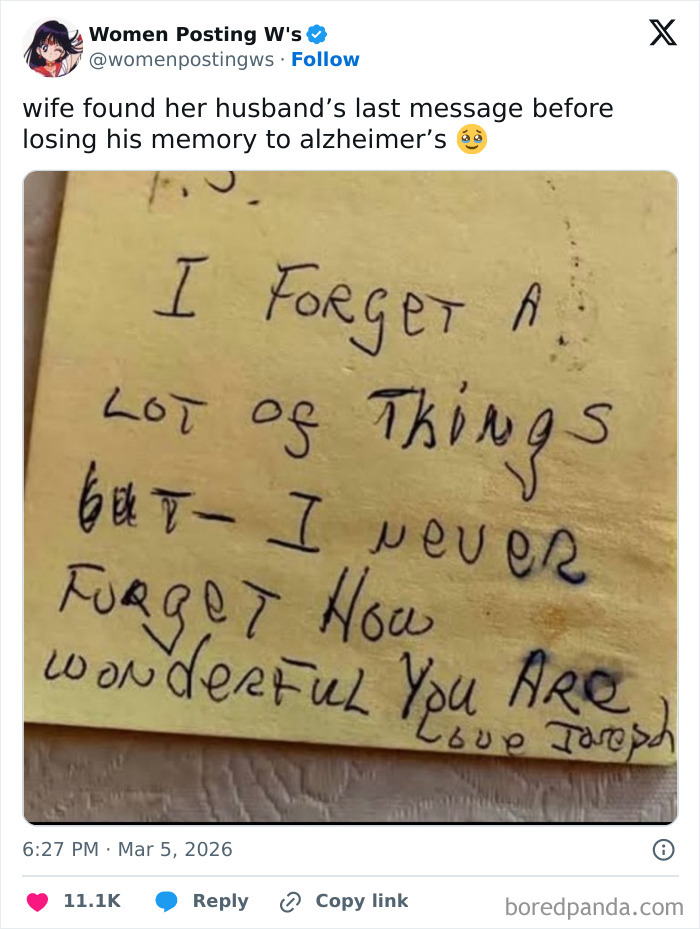 Women Posting W's
@womenpostingws · Follow
wife found her husband’s last message before
losing his memory to alzheimer’s 🥹
P.S.
I FORGET A
LOT OF THiNgS
but— I NeveR
FORgeT How
woNdeRFuL You ARe
Love Joseph
6:27 PM · Mar 5, 2026
11.1K Reply Copy link
boredpanda.com